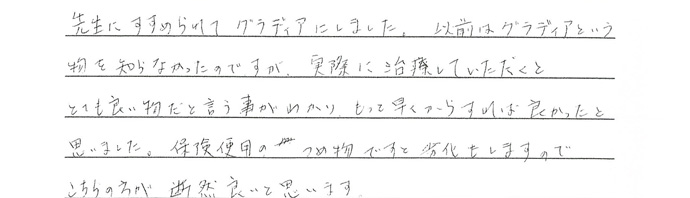 先生にすすめられて グラディアにしました。 以前はグラディアという
物を知らなかったのですが、実際に治療していただくと
とても良い物だと言う事がわかり、もっと早くからすれば良かったと
思いました。保険使用の つめ物ですと 劣化もしますので
こちらの方が 断然良いと思います。